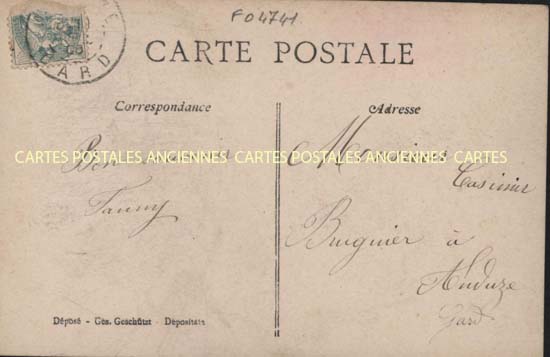 FO4741.
GARD
CARTE POSTALE
Correspondance
Bon souvenir
Fanny
Adresse
Monsieur
Casimir
Bruguier à
Anduze
Gard
CARTES POSTALES ANCIENNES CARTES POSTALES ANCIENNES CARTES POSTALES
Déposé - Ges. Geschützt - Depositato